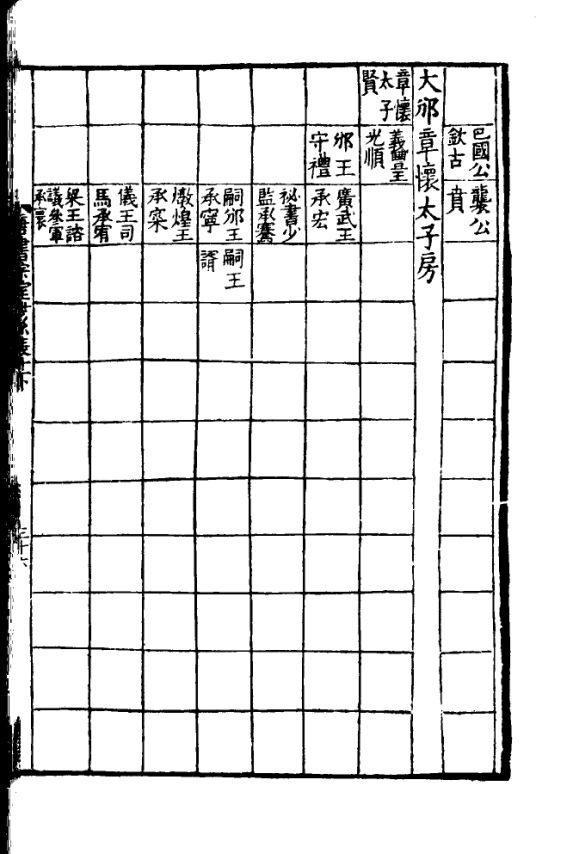 巴國公
欽古
襲公
賁
大邠章懷太子房
章懷
太子
賢
義豐王
光順
邠王
守禮
廣武王
承宏
祕書少
監承騫
嗣邠王
承寧
嗣王
諝
燉煌王
承寀
儀王司
馬承宥
梁王諮
議參軍
三十六